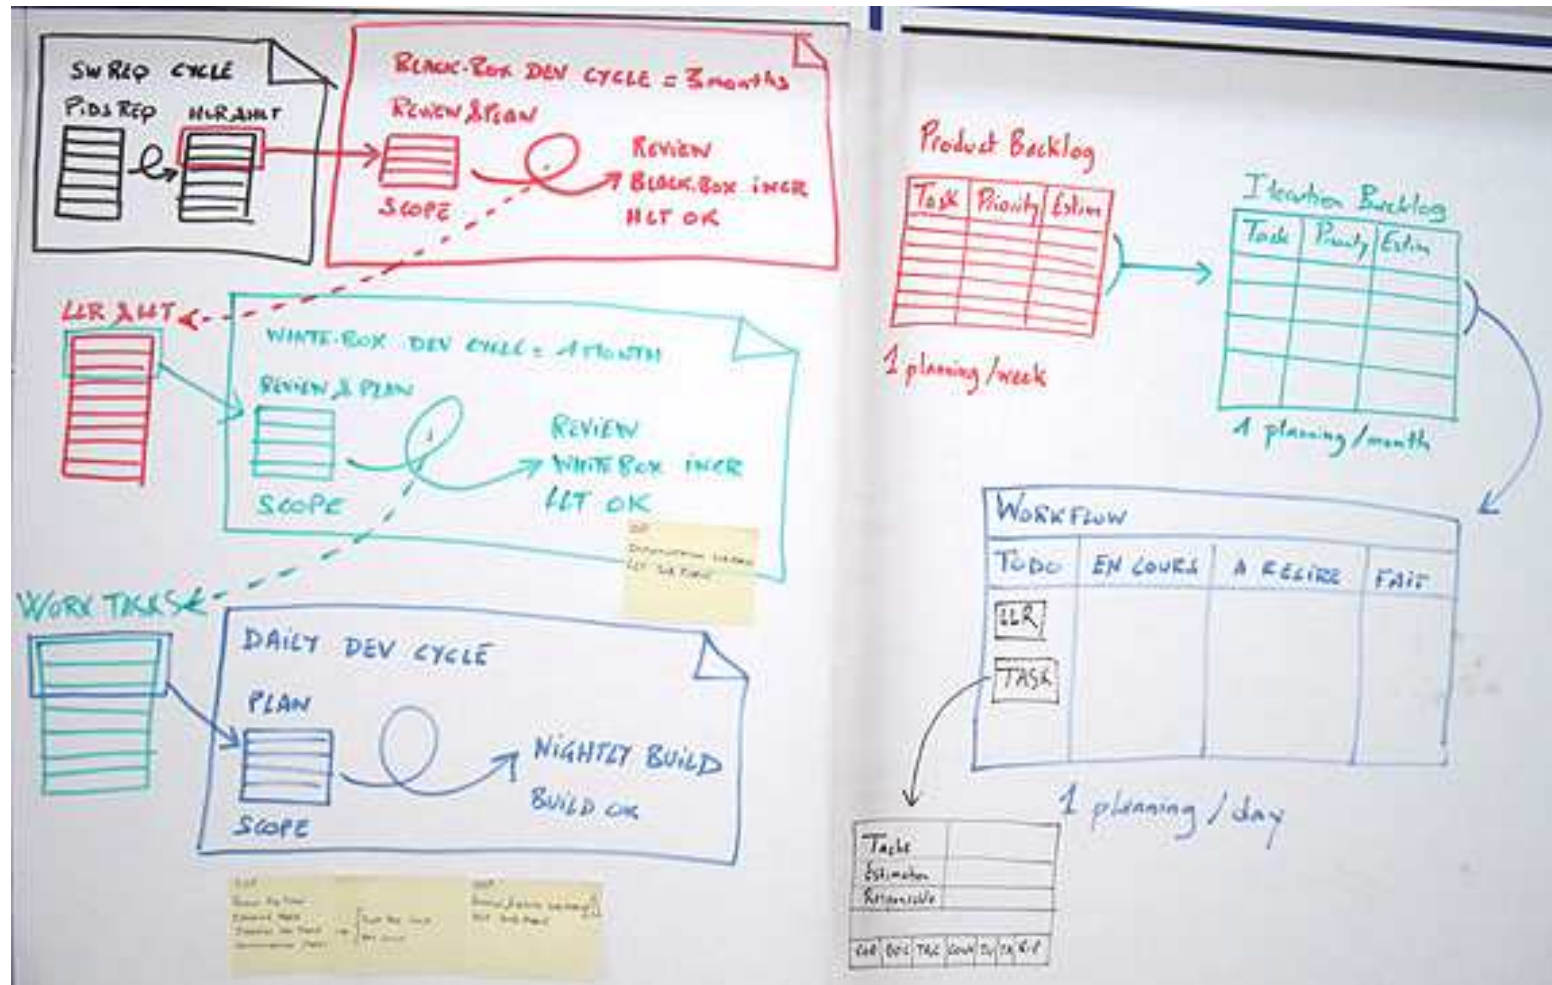 SW REQ CYCLE
PIDS REQ
HLR & HLT
BLACK-BOX DEV CYCLE = 3 months
REVIEW & PLAN
SCOPE
REVIEW
BLACK-BOX INCR
HLT OK
LLR & LLT
WHITE-BOX DEV CYCLE = 1 MONTH
REVIEW & PLAN
SCOPE
REVIEW
WHITE BOX INCR
LLT OK
WORK TASKS
DAILY DEV CYCLE
PLAN
SCOPE
NIGHTLY BUILD
BUILD OK
Product Backlog
Task Priority Estim
1 planning/week
Iteration Backlog
Task Priority Estim
1 planning/month
WORKFLOW
TODO EN COURS A RELIRE FAIT
LLR
TASK
1 planning/day
Tache
Estimation
Responsable